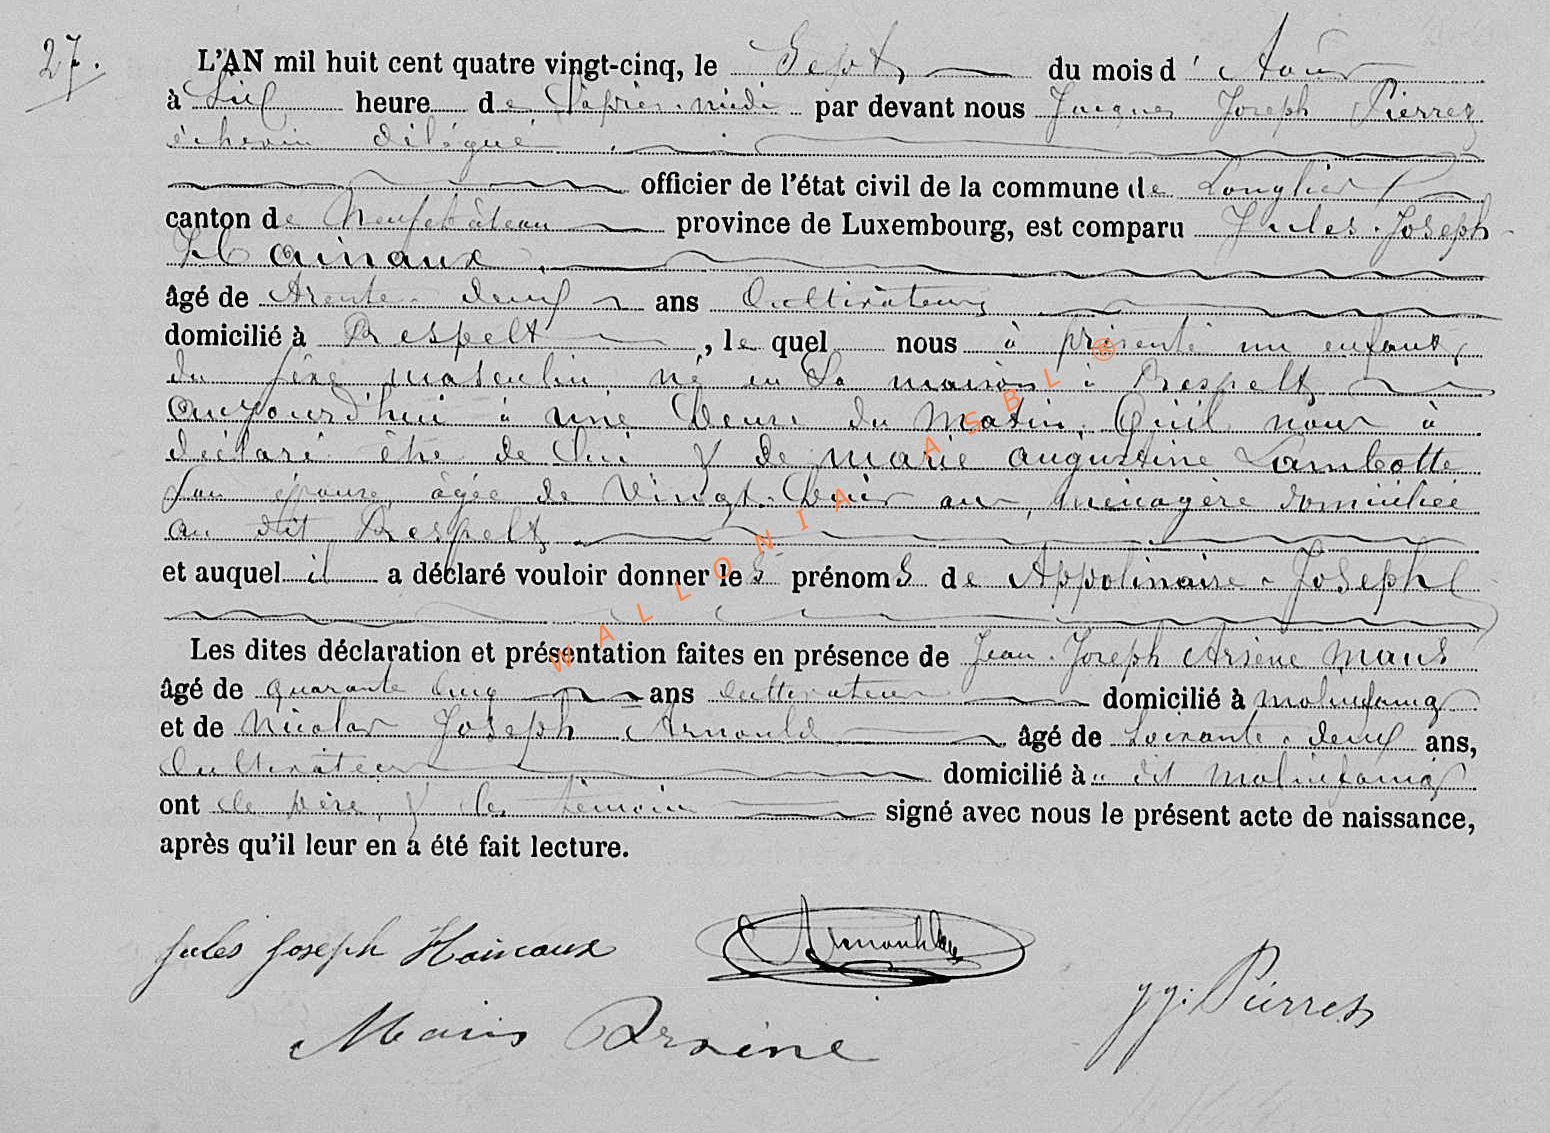 27.
L'AN mil huit cent quatre vingt-cinq, le Sept, du mois d'Août
à Six heure de l'après-midi par devant nous Jacques Joseph Pierret
échevin délégué
officier de l'état civil de la commune de Longlier
canton de Neufchâteau province de Luxembourg, est comparu Jules Joseph
Hainaux,
âgé de trente-deux ans Cultivateur
domicilié à Respelt, lequel nous à présenté un enfant,
du sexe masculin, né en Sa maison à Respelt
aujourd'hui à une heure du Matin, Qu'il nous à
déclaré être de lui & de marie augustine Lambotte
son épouse, âgée de Vingt-huit ans, ménagère domiciliée
au dit Respelt
et auquel il a déclaré vouloir donner les prénomS de Appolinaire-Joseph
Les dites déclaration et présentation faites en présence de Jean-Joseph Arsène Maus
âgé de quarante cinq ans cultivateur domicilié à molinfaing
et de Nicolas Joseph Arnould âgé de Soixante-deux ans,
Cultivateur domicilié à dit Molinfaing
ont le père, & les témoin signé avec nous le présent acte de naissance,
après qu'il leur en a été fait lecture.
Jules Joseph Hainaux
Maus Arsène
JJ. Pierret
WALLONIA ASBL ®